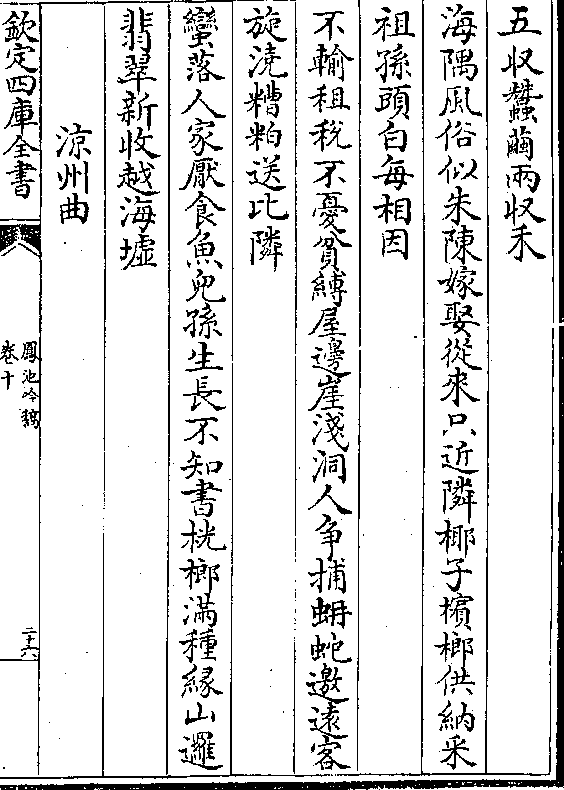 五収蠶繭兩収禾
海隅風俗似朱陳嫁娶從來只近隣椰子檳榔供納采
祖孫頭白每相因
不輸租稅不憂貧縛屋邊崖淺洞人争捕蚺蛇邀逺客
旋澆糟粕送比隣
蠻落人家厭食魚兒孫生長不知書桄榔滿種縁山邏
翡翠新收越海墟
涼州曲
欽定四庫全書
鳳池吟稿
卷十
二十六